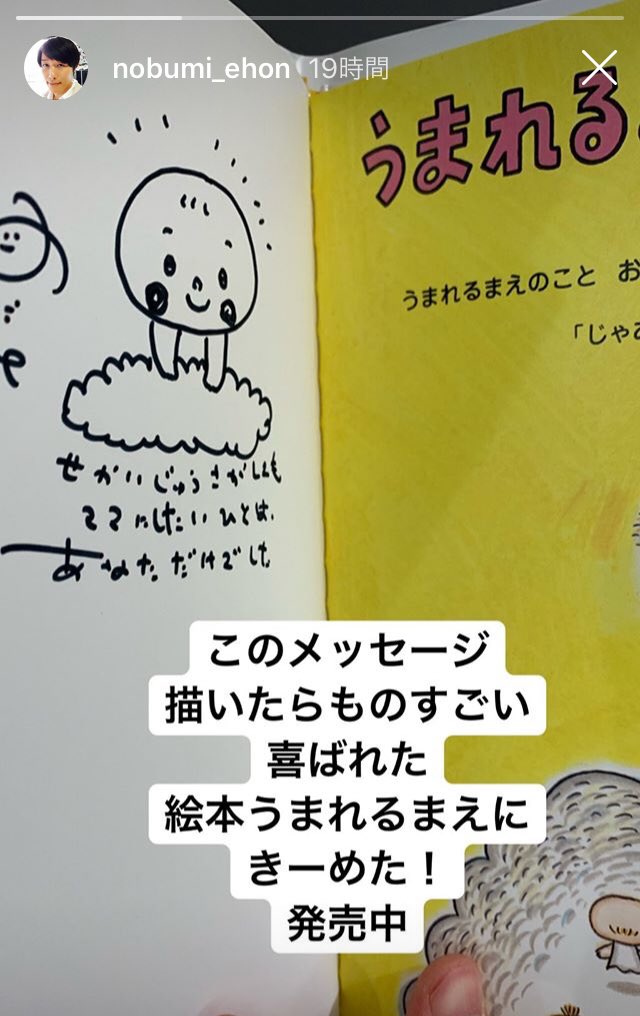 nobumi_ehon 19時間
せかいじゅうさがしても
ママにしたいひとは、
あなただけでした
うまれる
うまれるまえのこと お
「じゃ
このメッセージ
描いたらものすごい
喜ばれた
絵本うまれるまえに
きーめた！
発売中